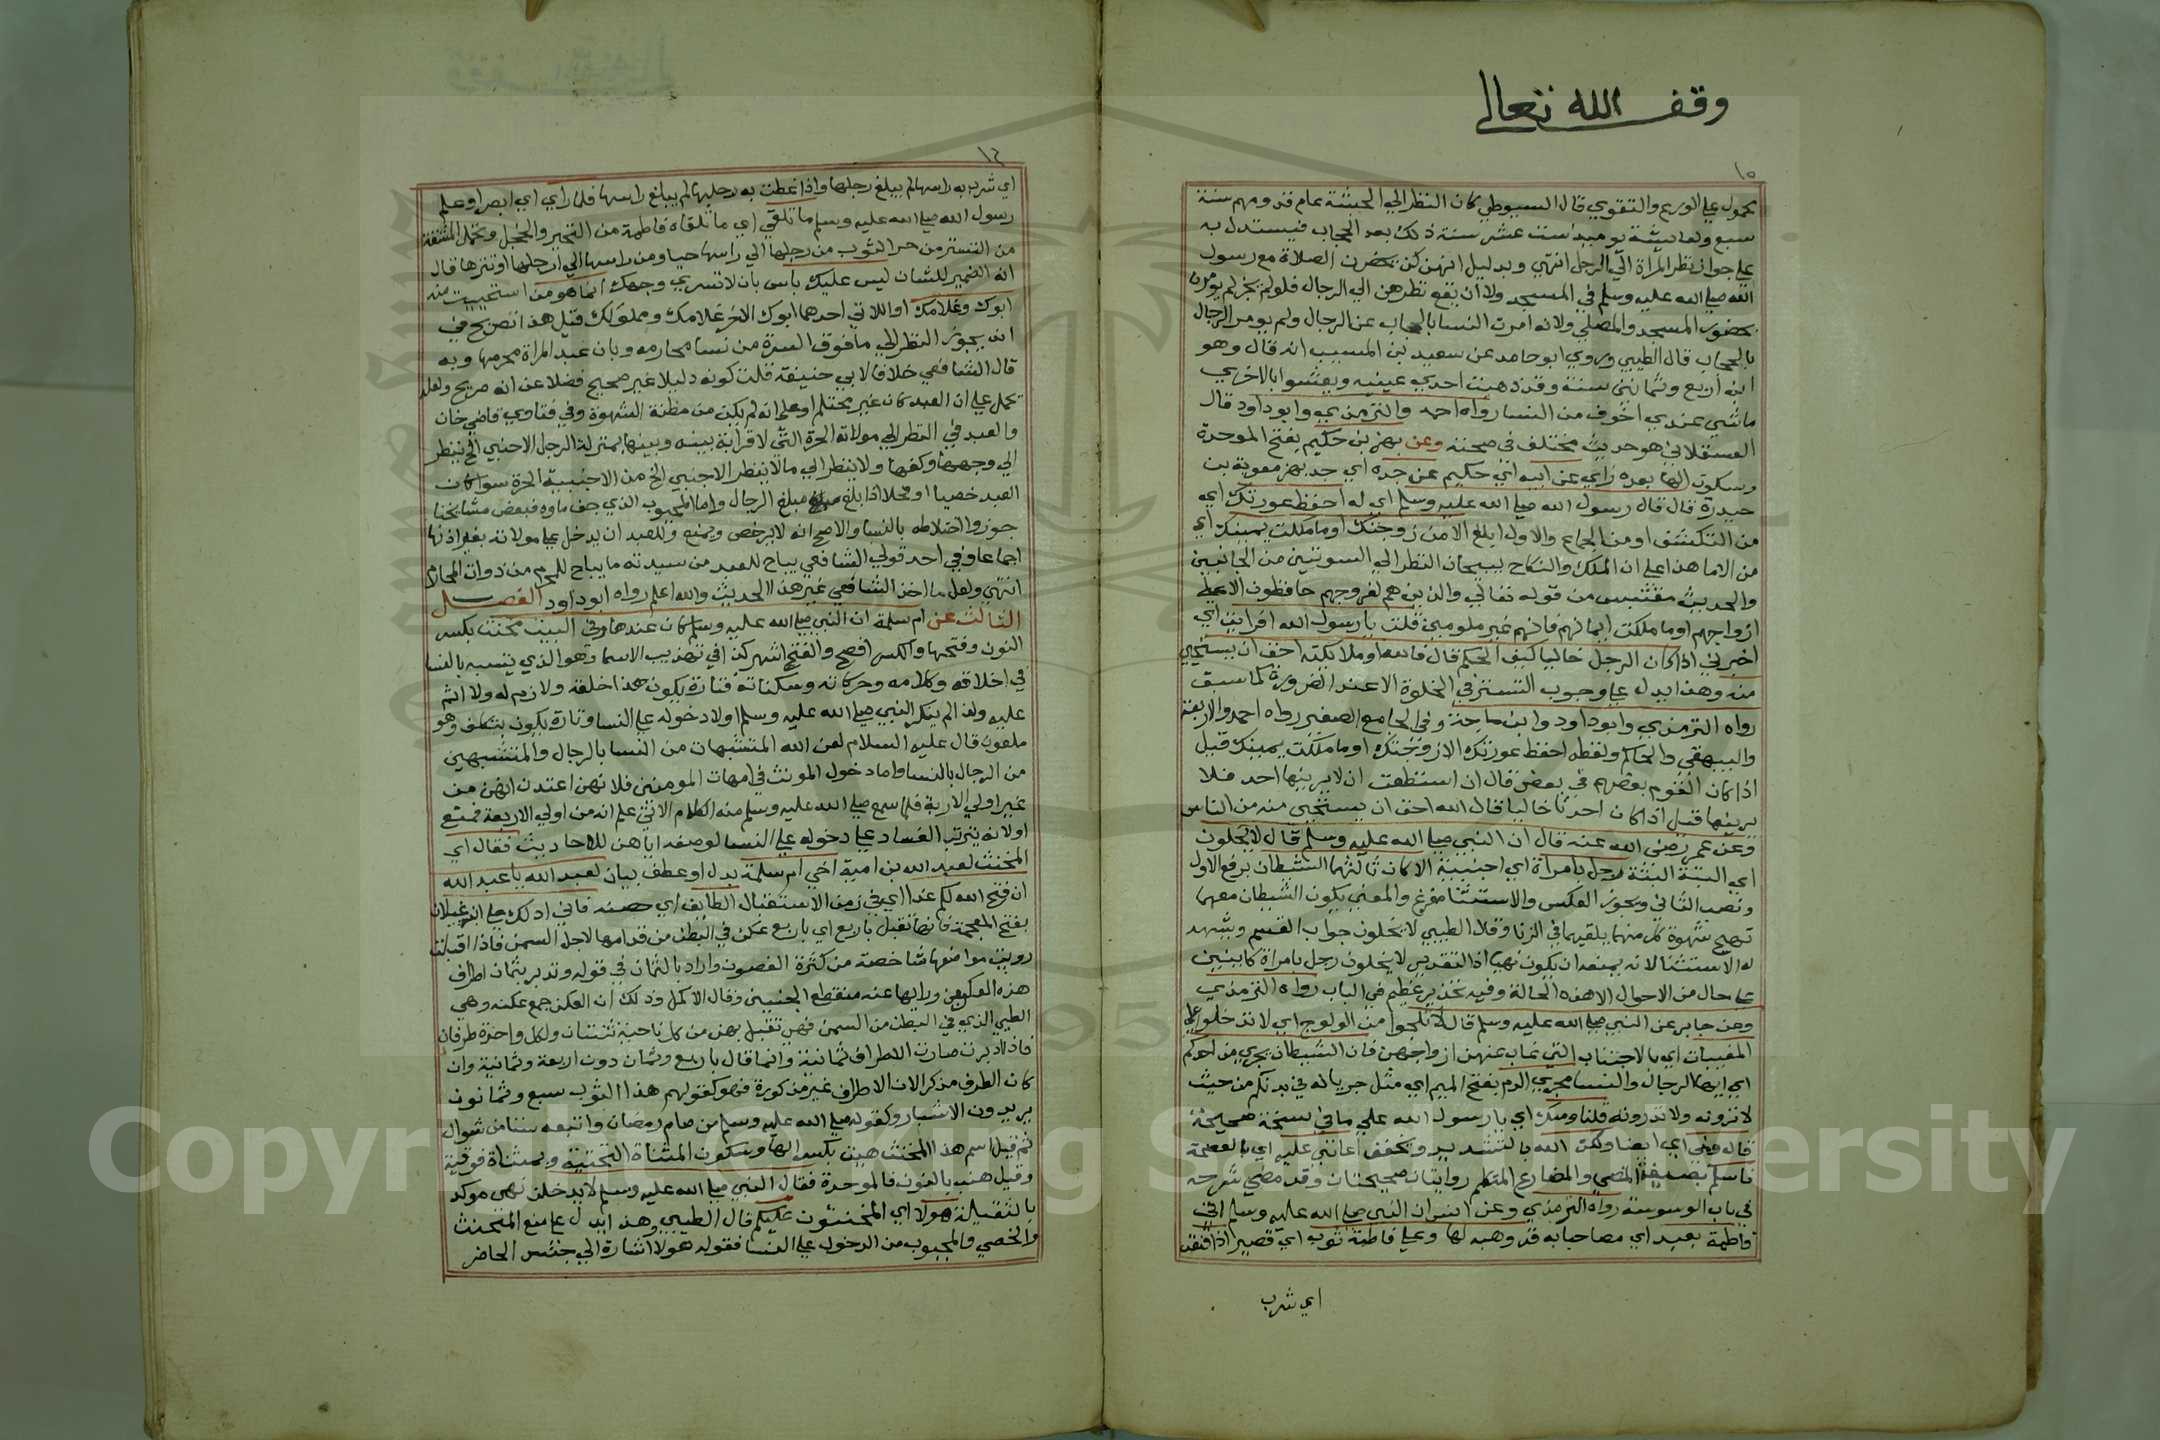 وقف الله تعالى
١٥
محمول علي الورع والتقوي قال السيوطي كان النظر الي الحبشة عام قدومهم سنة
سبع ولعايشة يوميذ ست عشر سنة وذلك بعد الحجاب فيستدل به
علي جواز نظر المراة الي الرجل انتهي وبدليل انهن كن يحضرن الصلاة مع رسول
الله صلي الله عليه وسلم في المسجد ولا ان يقع نظرهن الي الرجال فلو لم يجز لم يؤمرن
بحضور المسجد والمصلي ولانه امرت النسا بالحجاب عن الرجال ولم يومر الرجال
بالحجاب قال الطيبي وروي ابو حامد عن سعيد بن المسيب انه قال وهو
ابن اربع وثمانين سنة وقد ذهبت احدي عينيه ويعشوا بالاخري
ما شي عندي اخوف من النسا رواه احمد والترمذي وابو داود قال
العسقلاني هو حديث مختلف في صحته وعن بهز بن حكيم بفتح الموحدة
وسكون الها بعده زاي عن ابيه اي حكيم عن جده اي جد بهز معوية بن
حيدة قال قال رسول الله صلي الله عليه وسلم اي له احفظ عورتك اي
من التكشف او من الجماع والاول ابلغ الا من زوجتك او ما ملكت يمينك اي
من الاما هذا علي ان الملك والنكاح يبيحان النظر الي السوتين من الجانبين
والحديث مقتبس من قوله تعالي والذين هم لفروجهم حافظون الا علي
ازواجهم او ما ملكت ايمانهم فانهم غير ملومين قلت يا رسول الله افرايت اي
اخبرني اذا كان الرجل خاليا كيف الحكم قال فالله او ملايكته احق ان يستحيي
منه وهذا يدل علي وجوب التستر في الخلوة الا عند الضرورة كما سبق
رواه الترمذي وابو داود وابن ماجة وفي الجامع الصغير رواه احمد والاربعة
والبيهقي والحاكم ولفظه احفظ عورتك الا من زوجتك او ما ملكت يمينك قيل
اذا كان القوم بعضهم في بعض قال ان استطعت ان لا يرينها احد فلا
يرينها قيل اذا كان احدنا خاليا قال الله احق ان يستحيي منه من الناس
وعن عمر رضي الله عنه قال ان النبي صلي الله عليه وسلم قال لا يخلون
اي البتة البتة رجل بامراة اي اجنبية الا كان ثالثهما الشيطان برفع الاول
ونصب الثاني ويجوز العكس والاستثنا مفرغ والمعني يكون الشيطان معهما
تهيج شهوة كل منهما يلقيهما في الزنا وقال الطيبي لا يخلون جواب القسم ويشهد
له الاستثنا لانه يمنعه ان يكون نهيا اذ التقدير لا يخلون رجل بامراة كاينين
علي حال من الاحوال الا هذه الحالة وفيه تحذير عظيم في الباب رواه الترمذي
وعن جابر عن النبي صلي الله عليه وسلم قال لا تلجوا من الولوج اي لا تدخلوا علي
المغيبات اي بالاجنباب التي غاب عنهن ازواجهن فان الشيطان يجري من احدكم
اي ايها الرجال والنسا مجري الدم بفتح الميم اي مثل جريانه في بدنكم من حيث
لا ترونه ولا تدرونه قلنا ومنك اي يا رسول الله علي ما في نسخة صحيحة
قال ومني اي ايضا ولكن الله بالتشديد ويخفف اعانني عليه اي بالعصمة
فاسلم بصيغة المضي والمضارع المتكلم روايتان صحيحتان وقد مضي شرحه
في باب الوسوسة رواه الترمذي وعن انس ان النبي صلي الله عليه وسلم اتي
فاطمة بعبد اي مصاحبا به قد وهبه لها وعلي فاطمة ثوب اي قصير اذا قنعت
اي شرب
١٦
اي شرب به راسها لم يبلغ رجلها واذا غطت به رجليها لم يبلغ راسها فلما راي اي ابصر او علم
رسول الله صلي الله عليه وسلم ما تلقي اي ما تلقاه فاطمة من التحير والخجل وتحمل المشقة
من التستر من جر الثوب من رجلها الي راسها حيا ومن راسها الي ارجلها او تنزها قال
انه الضمير للشان ليس عليك باس بان لا تستري وجهك انما هو من استحييت منه
ابوك وغلامك او اللاتي احدهما ابوك الاخر غلامك ومملوك قيل هذا تصريح في
انه يجوز النظر الي ما فوق السرة من نسا محارمه وبان عبد المراة محرمها وبه
قال الشافعي خلافا لابي حنيفة قلت كونه دليلا غير صحيح فضلا عن انه صريح ولعله
يحمل علي ان العبد كان غير محتلم او علي انه لم يكن من مظنة الشهوة وفي فتاوي قاضي خان
والعبد في النظر الي مولاته الحرة التي لا قرابة بينه وبينها بمنزلة الرجل الاجنبي الخ ينظر
الي وجهها وكفها ولا ينظر الي ما لا ينظر الاجنبي الخ من الاجنبية الحرة سوا كان
العبد خصيا او فحلا اذا بلغ مبلغ الرجال واما المجبوب الذي جف ماوه فبعض مشايخنا
جوزوا اختلاطه بالنسا والاصح انه لا يرخص ويمنع وللعبد ان يدخل علي مولاته بغير اذنها
اجماعا وفي احد قولي الشافعي يباح للعبد من سيدته ما يباح للمحرم من ذوات المحارم
انتهي ولعل ماخذ الشافعي غير هذا الحديث والله اعلم رواه ابو داود الفصل
الثالث عن ام سلمة ان النبي صلي الله عليه وسلم كان عندها وفي البيت مخنث بكسر
النون وفتحها والكسر افصح والفتح اشهر كذا في تهذيب الاسما وهو الذي يتشبه بالنسا
في اخلاقه وكلامه وحركاته وسكناته فتارة يكون هذا خلقه ولا ذم له ولا اثم
عليه ولذا لم ينكر النبي صلي الله عليه وسلم اولا دخوله علي النسا وتارة يكون بتكلف وهو
ملعون قال عليه السلام لعن الله المتشبهات من النسا بالرجال والمتشبهين
من الرجال بالنسا واما دخول المونث في امهات المومنين فلانهن اعتدن انهن من
غير اولي الاربة فلما سمع صلي الله عليه وسلم منه الكلام الاتي علم انه من اولي الاربعة فمنع
اولا نه يترتب الفساد علي دخوله علي النسا لوصفه اياهن للاحاديث فقال اي
المخنث لعبد الله بن امية اخي ام سلمة بدل او عطف بيان لعبد الله يا عبد الله
ان فتح الله لكم غدا اي في زمن الاستقبال الطايف اي حصنه فاني ادلك علي ابنة غيلان
بفتح المعجمة فانها تقبل باربع اي باربع عكن في البطن من قدامها لاجل السمن فاذا اقبلت
رويت مواضعها شاخصة من كثرة الغصون واراد بالثمان في قوله وتدبر بثمان اطراف
هذه العكن من ورايها عند منقطع الجنبين وقال الاكمل وذلك ان العكن جمع عكنة وهي
الطي الذي في البطن من السمن فهن تقبل بهن من كل ناحية ثنتان ولكل واحدة طرفان
فاذا ادبرت صارت الاطراف ثمانية وانما قال باربع وثمان دون اربعة وثمانية وان
كان الطرف مذكرا لان الاطراف غير مذكورة فهو كقولهم هذا الثوب سبع وثمانون
يريدون الاشبار وكقوله صلي الله عليه وسلم من صام رمضان واتبعه ستا من شوال
ثم قيل اسم هذا المخنث هيت بكسر الها وسكون المثناة التحتية وبمثناة فوقية
وقيل هنب بالنون فالموحدة فقال النبي صلي الله عليه وسلم لا يدخلن نهي موكد
بالثقيلة هولا اي المخنثون عليكم قال الطيبي وهذا يدل علي منع المخنث
والخصي والمجبوب من الدخول علي النسا فقوله هولا اشارة الي جنس الحاضر
Copyright © King Saud University